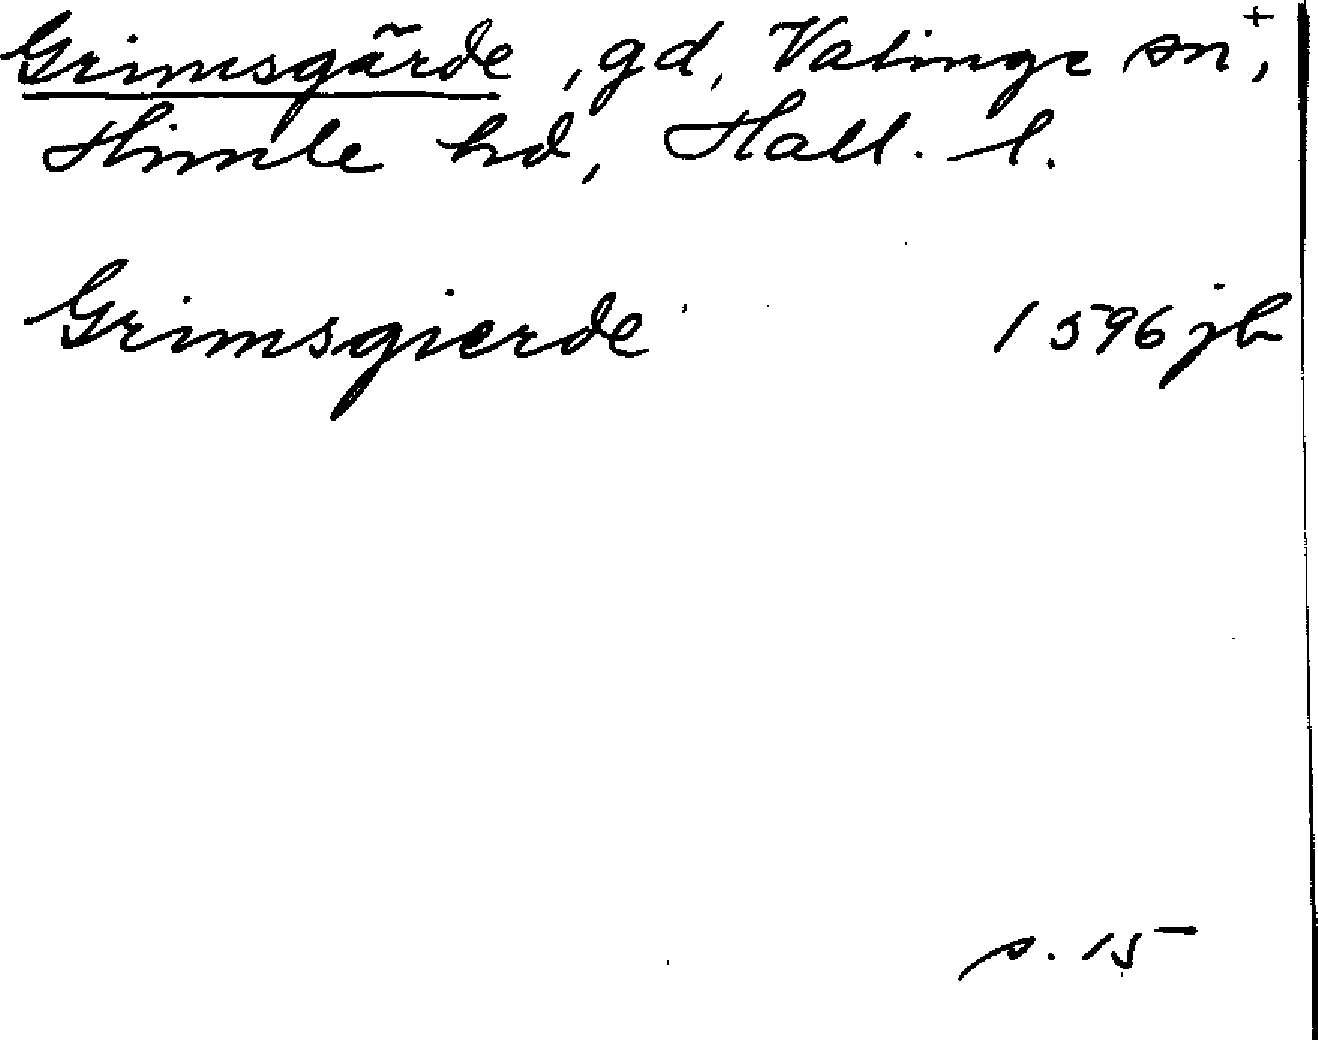 Grimsgärde, gd, Valinge sn+,
Himle hd, Hall. l.
Grimsgierde 1596 jb
s. 15